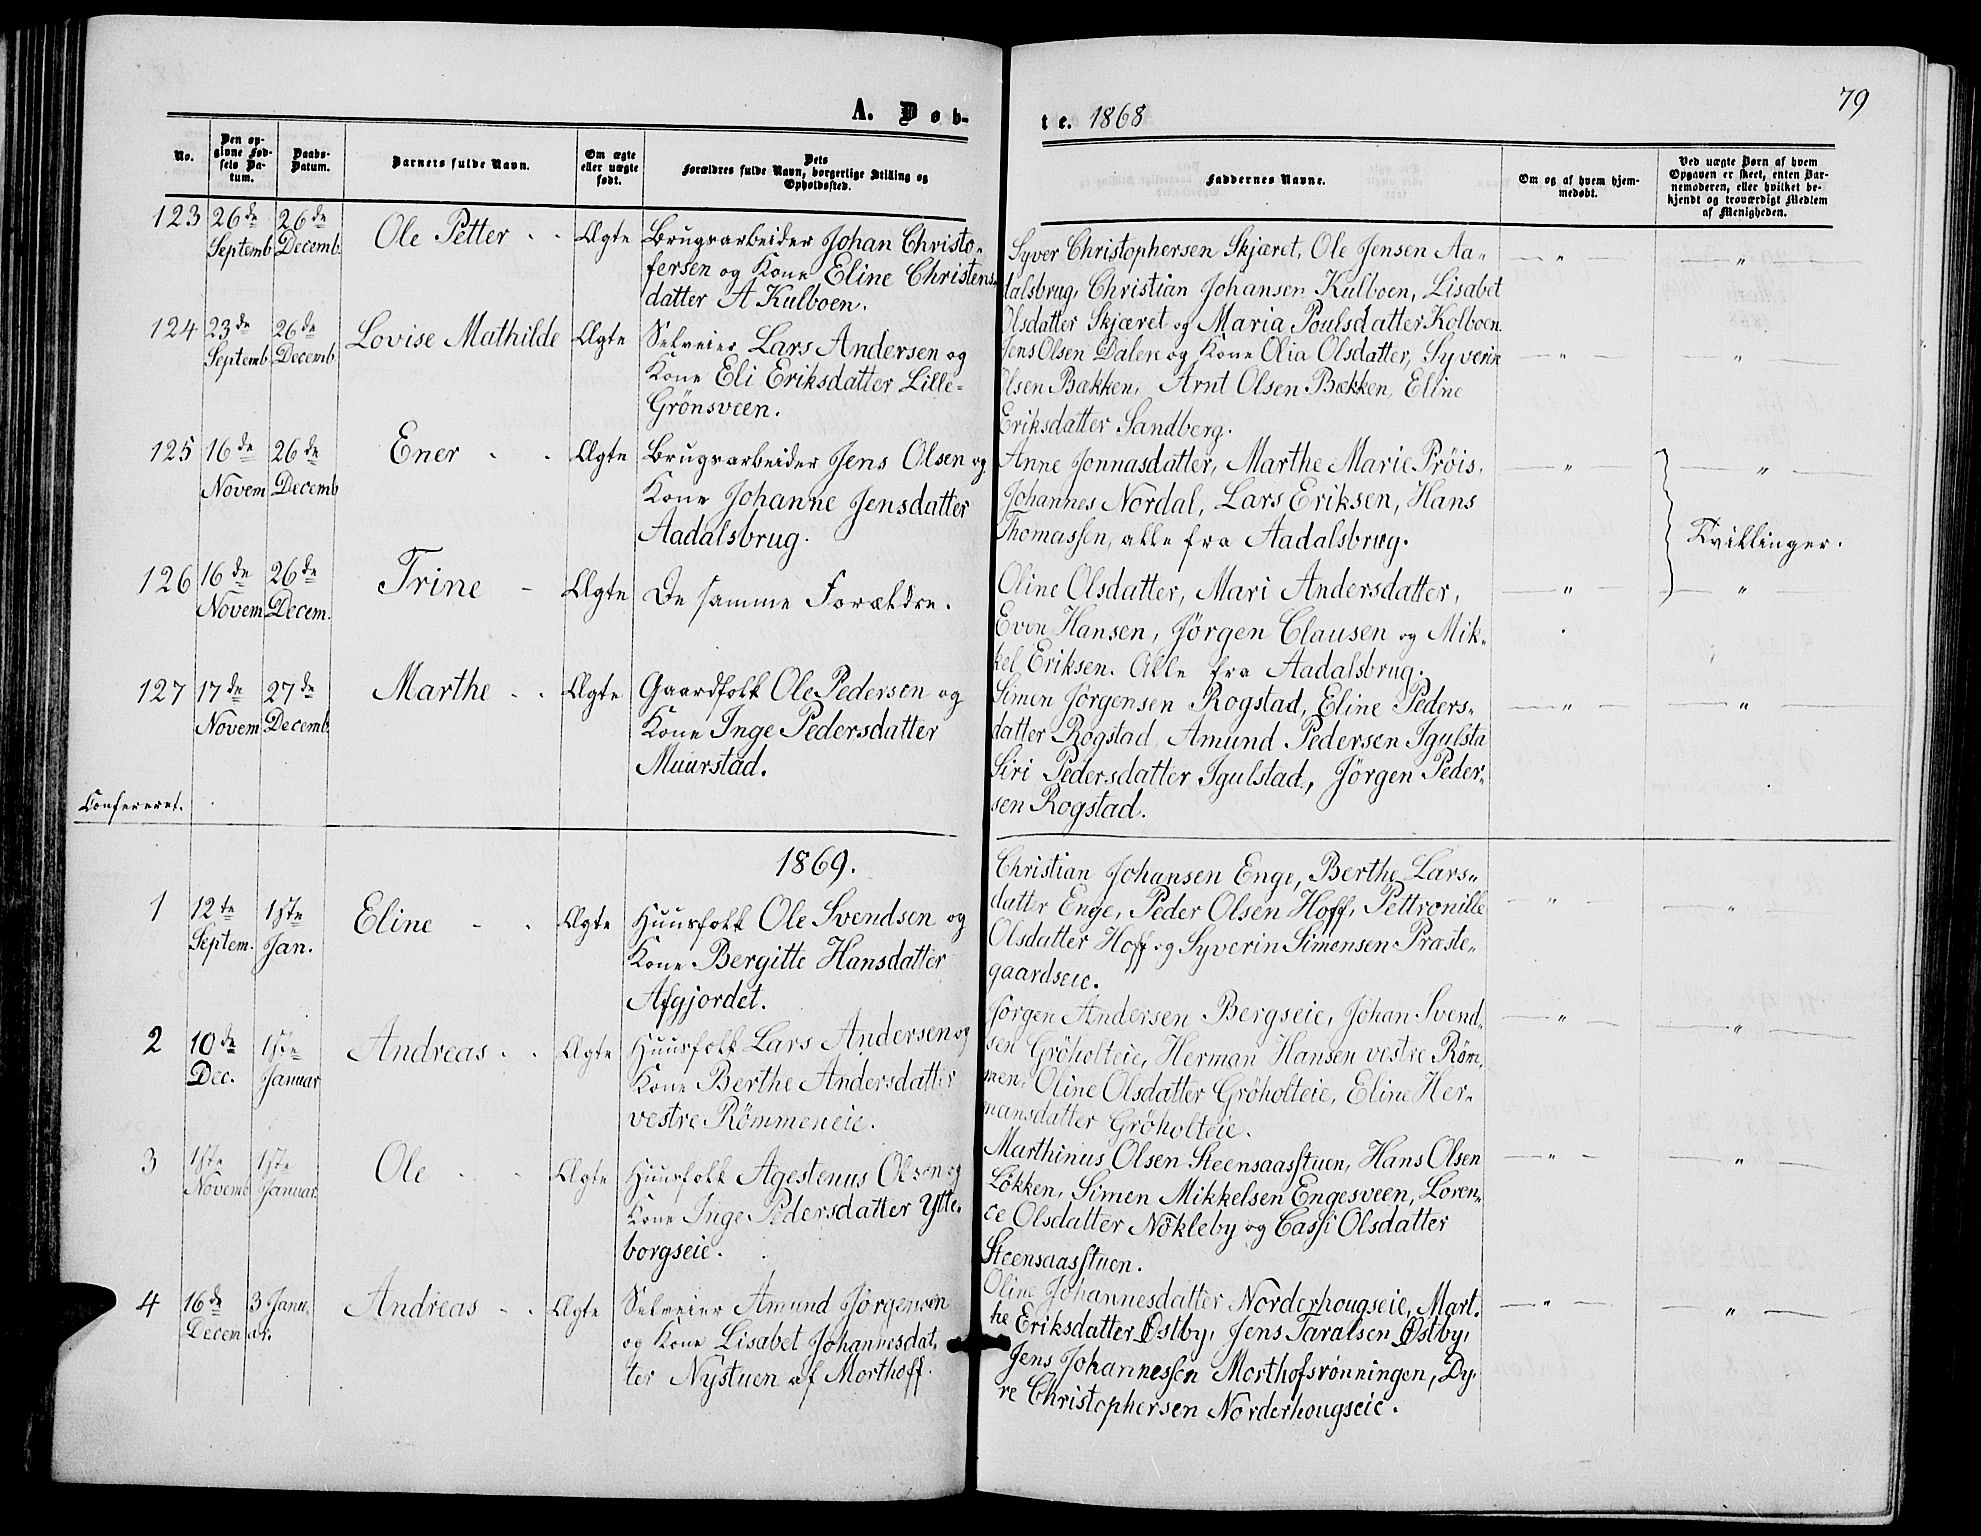 79
A. Døb-
te. 1868
No.
Den op-
givne Fød-
sels Da-
tum.
Daabs-
Datum.
Barnets fulde Navn.
Om ægte
eller uægte
født.
Dets
Forældres fulde Navn, borgerlige Stilling og
Opholdssted.
Faddernes Navne.
Om og af hvem hjem-
medøbt.
Ved uægte Børn af hvem
Opgaven er skeet, enten Bar-
nemoderen, eller hvilket be-
kjendt og troværdigt Medlem
af Menigheden.
123 26de 26de Ole Petter Ægte Brugsarbeider Johan Christo-
Septemb Decemb. fersen og Kone Eline Christens-
datter A Kulboen.
Syver Christophersen Skjæret, Ole Jensen Aa-
dalsbrug, Christian Johansen Kulboen, Lisabet
Olsdatter Skjæret og Maria Poulsdatter Kolboen.
124 23de 26de Lovise Mathilde Ægte Selveier Lars Andersen og
Septemb. Decemb Kone Eli Eriksdatter Lille-
Grönsveen.
Jens Olsen Dalen og Kone Olia Olsdatter, Syverin
Olsen Bækken, Arnt Olsen Bækken, Eline
Eriksdatter Sandberg.
125 16de 26de Ener Ægte Brugsarbeider Jens Olsen og
Novem Decemb Kone Johanne Jensdatter
Aadalsbrug.
Anne Jonnasdatter, Marthe Marie Pröis,
Johannes Nordal, Lars Eriksen, Hans
Thomassen, alle fra Aadalsbrug.
Tvillinger.
126 16de 26de Trine Ægte De samme Forældre.
Novem Decem.
Oline Olsdatter, Mari Andersdatter,
Even Hansen, Jörgen Clausen og Mik-
kel Eriksen. Alle fra Aadalsbrug.
127 17de 27de Marthe Ægte Gaardfolk Ole Pedersen og
Novem Decemb. Kone Inge Pedersdatter
Muurstad.
Simen Jørgensen Rogstad, Eline Peders-
datter Rogstad, Amund Pedersen Igulsta
Siri Pedersdatter Igulstad, Jörgen Peder-
sen Rogstad.
Confereret.
1869.
1 12te 1ste Eline Ægte Huusfolk Ole Svendsen og
Septem. Jan. Kone Bergitte Hansdatter
Afgjordet.
Christian Johansen Enge, Berthe Lars-
datter Enge, Peder Olsen Hoff, Pettronille
Olsdatter Hoff og Syverin Simensen Præste-
gaardseie.
2 10de 1ste Andreas Ægte Huusfolk Lars Andersen og
Dec. Januar Kone Berthe Andersdatter
vestre Römmeneie.
Jørgen Andersen Bergseie, Johan Svend-
sen Gröholteie, Herman Hansen vestre Röm-
men, Oline Olsdatter Gröholteie, Eline Her-
mansdatter Gröholteie.
3 1ste 1ste Ole Ægte Huusfolk Agestenus Olsen og
Novemb Januar. Kone Inge Pedersdatter Ytte-
borgseie.
Marthinus Olsen Steensaasstuen, Hans Olsen
Lökken, Simen Mikkelsen Engesveen, Loren-
ce Olsdatter Nökleby og Cassi Olsdatter
Steensaasstuen.
4 16de 3 Janu- Andreas Ægte Selveier Amund Jörgensen
Decem ar. og Kone Lisabet Johannesdat-
ter Nystuen af Morthoff.
Oline Johannesdatter Norderhougseie, Mart-
he Eriksdatter Østby, Jens Taralsen Østby,
Jens Johannessen Morthofsrønningen, Dy-
re Christophersen Norderhougseie.